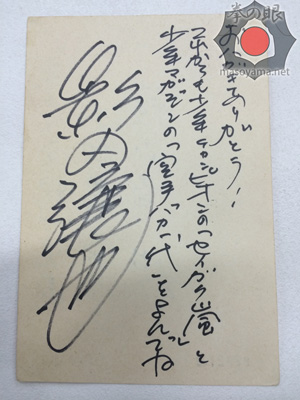 拳の眼
masoyama.net
おハガキありがとう！
これからも少年チャンピオンの「セイガク嵐」と
少年マガジンの「空手バカ一代」をよんでね
影丸譲也